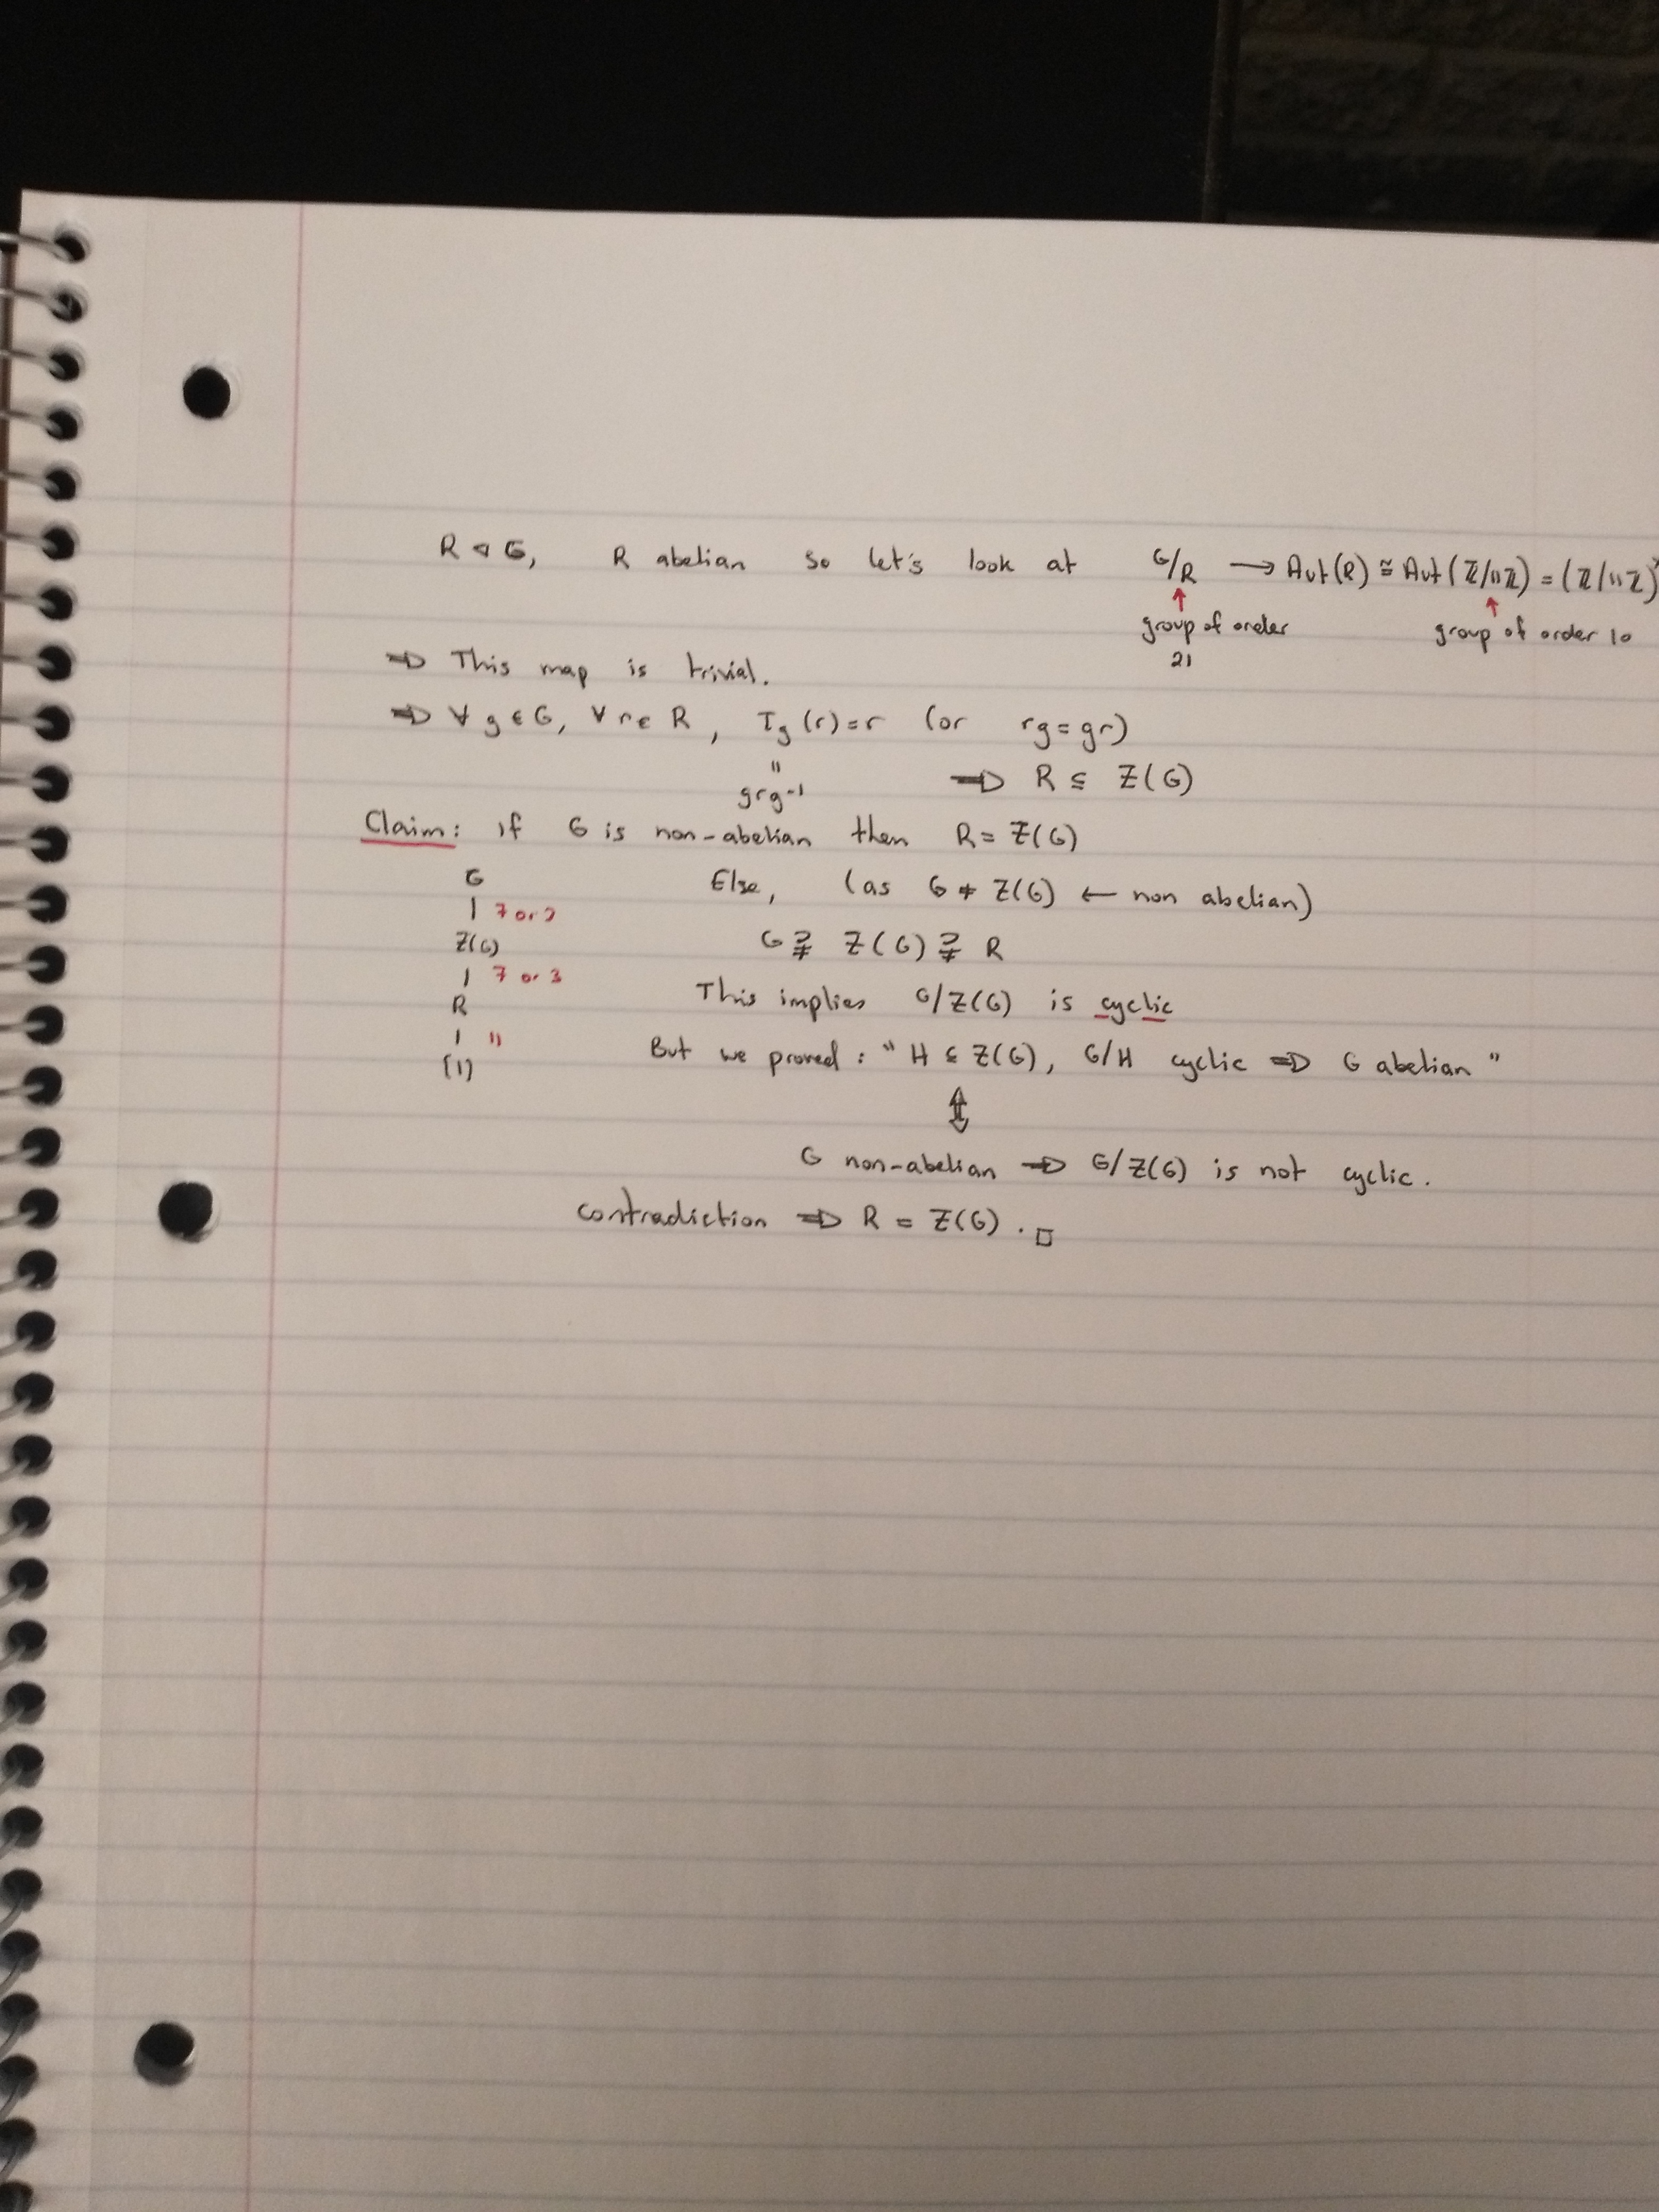 R ⊲ G, R abelian so let's look at G/R → Aut(R) ≅ Aut(ℤ/11ℤ) = (ℤ/11ℤ)
↑ group of order 21
↑ group of order 10
⇒ This map is trivial.
⇒ ∀ g ∈ G, ∀ r ∈ R, Ig(r) = r (or rg = gr)
" grg⁻¹
⇒ R ⊆ Z(G)
Claim: if G is non-abelian then R = Z(G)
G Else, (as G ≠ Z(G) ← non abelian)
| 7 or 3
Z(G) G ⊋ Z(G) ⊋ R
| 7 or 3
R This implies G/Z(G) is cyclic
| 11
{1} But we proved: "H ⊆ Z(G), G/H cyclic ⇒ G abelian"
⇕
G non-abelian ⇒ G/Z(G) is not cyclic.
contradiction ⇒ R = Z(G). □